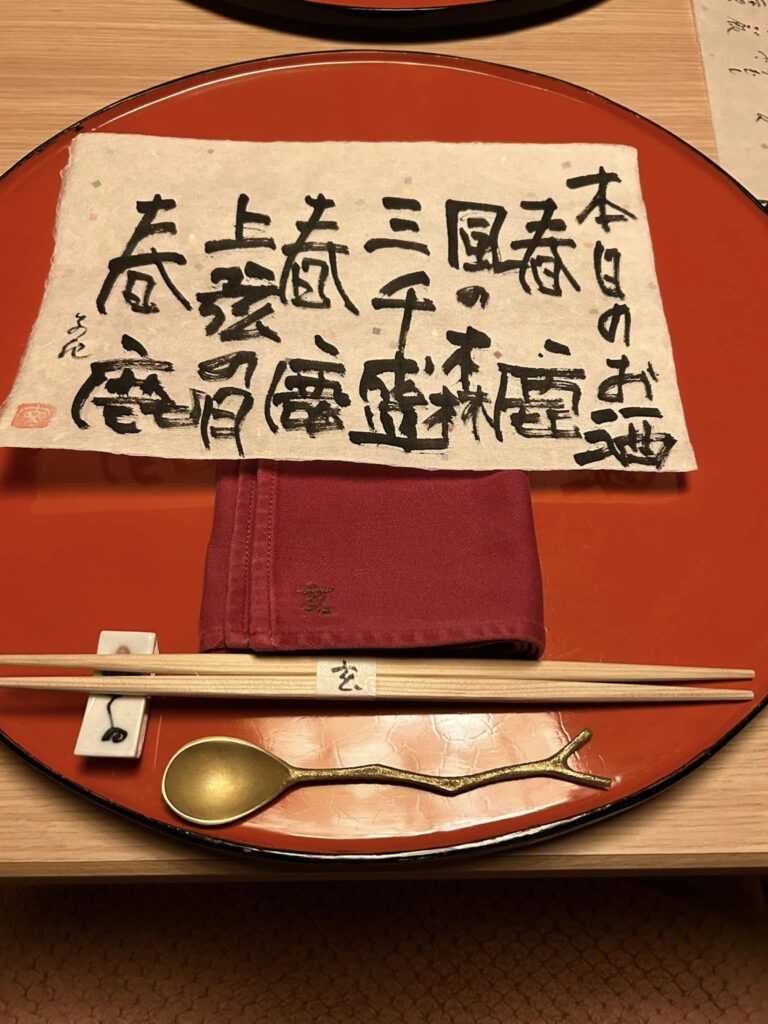 本日のお酒
春鹿
風の森
三千盛
春鹿
上弦の月
春鹿
玄
玄